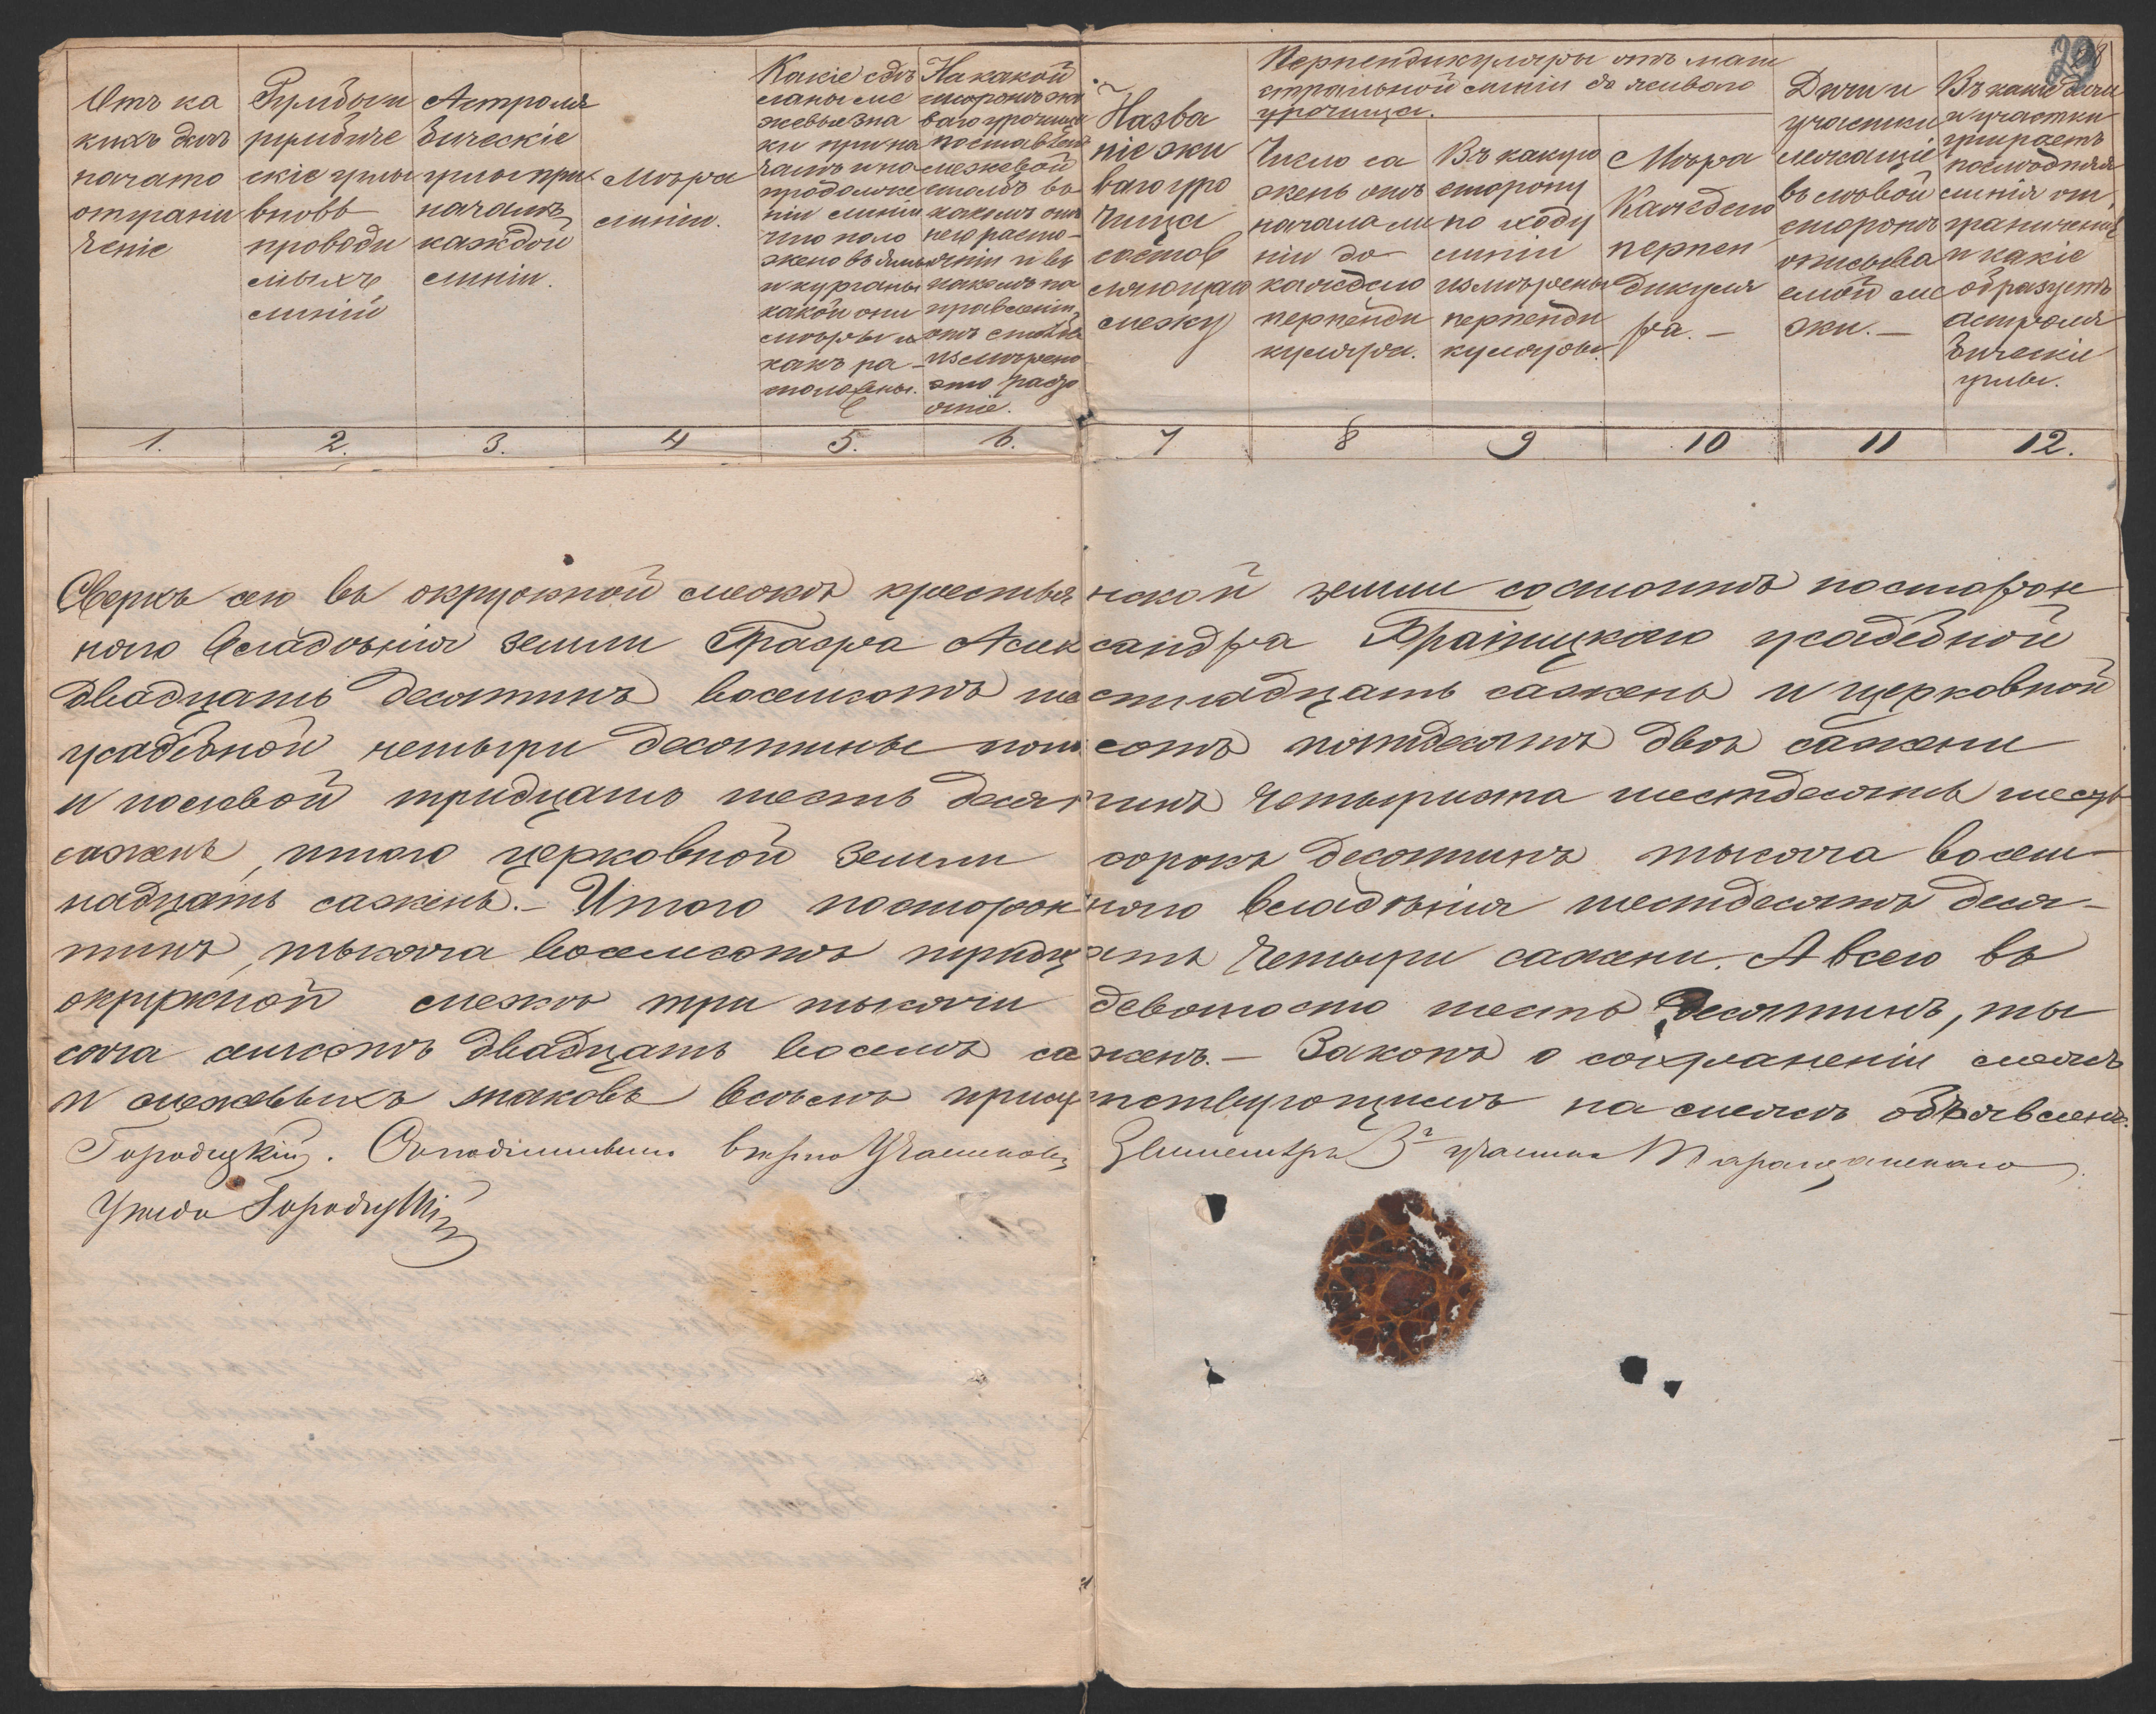 28
Отъ ка
кихъ дачъ
начато
ограни
ченіе
Румбы и
румбиче
скіе углы
вновь
проводи
мыхъ
линій
Астроля
бическіе
углы при
началѣ
каждой
линіи.
Мѣра
линіи.
Какіе сдѣ
ланы ме
жевые зна
ки при на
чалѣ и по
продолже
ніи линіи
что поло
жено въ ямы
и курганы
какой они
мѣры и
какъ ра
положены.
На какой
сторонѣ жи
ваго урочища
поставленъ
межевой
столбъ въ
какомъ отъ
него разсто-
яніи и въ
какомъ на
правленіи
отъ столба
измѣрено
это разсто
яніе.
Назва
ніе жи
ваго уро
чища
состав
ляющаго
межу
Перпендикуляры отъ маги
стральной линіи до живаго
урочища.
Число са
жень отъ
начала ли
ніи до
каждаго
перпенди
куляра.
Въ какую
сторону
по ходу
линіи
измѣрены
перпенди
куляры.
Мѣра
каждаго
перпен
дикуля
ра. —
Дачи и
участки
лежащіе
въ лѣвой
сторонѣ
описыва
емой ме
жи. —
Въ какіе дачи
и участки
упирается
послѣдняя
линія от
граниченія
и какіе
образуетъ
астроля
бическіе
углы.
1. 2. 3. 4 5. 6. 7 8 9 10 11 12.
Сверхъ сего въ окружной межѣ крестьянской земли состоитъ посторон
няго владѣнія земли Графа Александра Браницкаго усадебной
двадцать десятинъ восемьсотъ шестнадцать сажень и церковной
усадебной четыри десятины пятьсотъ пятдесятъ двѣ сажени
и полевой тридцать шесть десятинъ четыриста шестдесятъ шесть
сажень, итого церковной земли сорокъ десятинъ тысяча восем-
надцать сажень. — Итого посторонняго владѣнія шестдесятъ деся-
тинъ, тысяча восемсотъ тридцать четыри сажени. А всего въ
окружной межѣ три тысячи девяносто шесть десятинъ, ты
сяча семсотъ двадцать восемь сажень. — Законъ о сохраненіи межъ
и межевыхъ знаковъ всѣмъ присутствующимъ на межѣ объявленъ.
Городицкій. Съ подлиннымъ вѣрно Участковый Землемѣръ 3го участка Таращанскаго
Уѣзда Городицкій